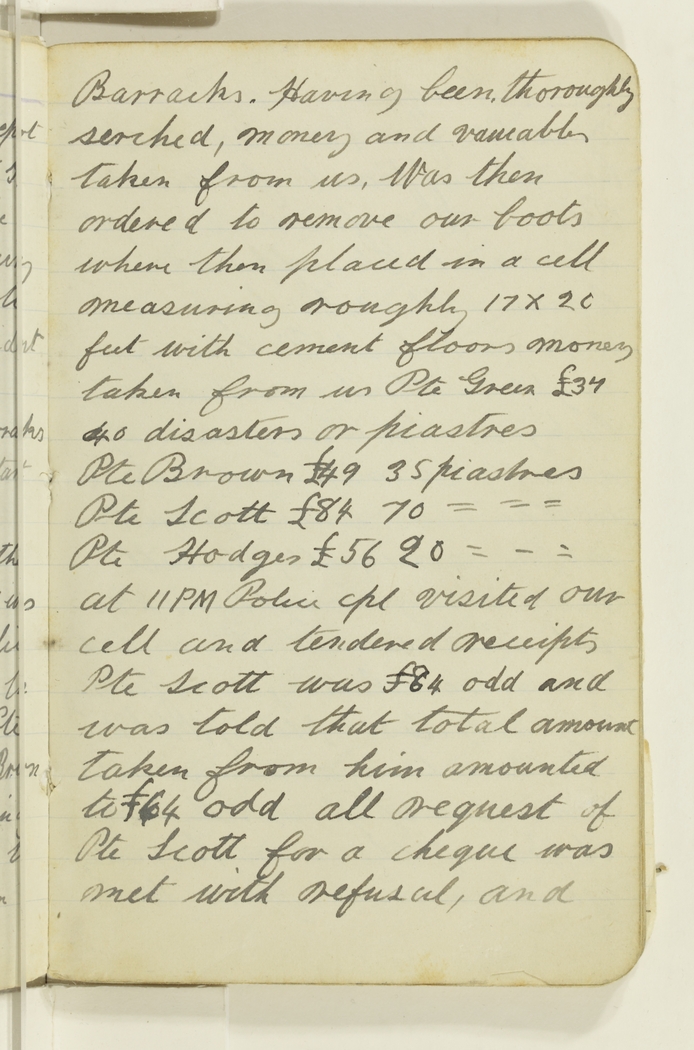 Barracks. Having been thoroughly
serched, money and valuables
taken from us, Was then
ordered to remove our boots
where then placed in a cell
measuring roughly 17 x 20
feet with cement floors money
taken from us Pte Green £34
40 disasters or piastres
Pte Brown £49 35 piastres
Pte Scott £84 70 = = =
Pte Hodges £56 20 = - =
at 11PM Police cpl visited our
cell and tendered receipts
Pte Scott was £64 odd and
was told that total amount
taken from him amounted
to £64 odd all request of
Pte Scott for a cheque was
met with refusal, and